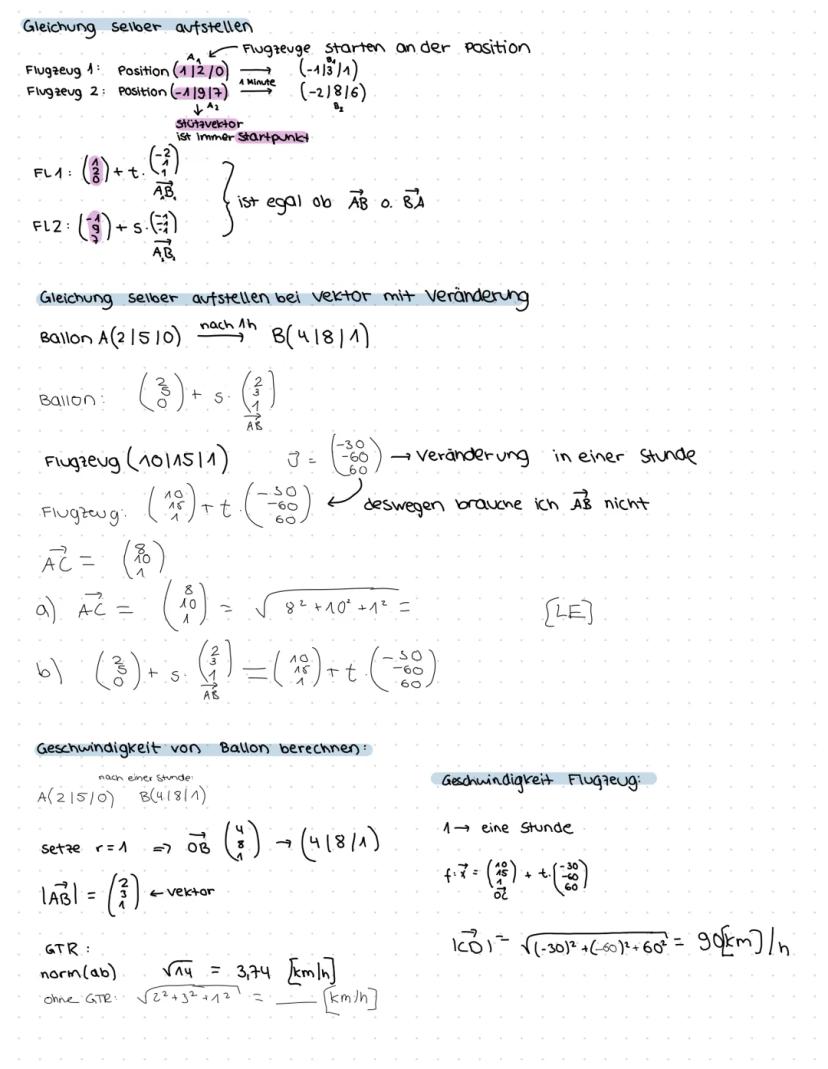 Gleichung selber aufstellen
Flugzeuge starten an der Position
A₁ B₁
Flugzeug 1: Position (1|2|0) → (-1|3|1)
1 Minute
Flugzeug 2: Position (-1|9|7) → (-2|8|6)
↓ A₂ B₂
Stützvektor
ist immer Startpunkt
FL1: (1 2 0) + t · (-2 1 1)
AB
ist egal ob AB o. BA
FL2: (-1 9 7) + s · (-1 -1 -1)
AB
Gleichung selber aufstellen bei Vektor mit Veränderung
Ballon A(2|5|0) nach 1h → B(4|8|1)
Ballon: (2 5 0) + s · (2 3 1)
AB
Flugzeug (10|15|1) J = (-30 -60 60) → Veränderung in einer Stunde
Flugzeug: (10 15 1) + t · (-30 -60 60) deswegen brauche ich AB nicht
AC = (8 10 1)
a) AC = (8 10 1) = √8² + 10² + 1² = [LE]
b) (2 5 0) + s · (2 3 1) = (10 15 1) + t · (-30 -60 60)
AB
Geschwindigkeit von Ballon berechnen:
nach einer Stunde:
A(2|5|0) B(4|8|1)
setze r=1 => OB (4 8 1) → (4|8|1)
|AB| = (2 3 1) ← Vektor
GTR:
norm(ab) √14 = 3,74 [km/h]
ohne GTR: √2²+3²+1² = ___ [km/h]
Geschwindigkeit Flugzeug:
1 → eine Stunde
f: x = (10 15 1) + t · (-30 -60 60)
OC
|CD| = √(-30)² + (-60)² + 60² = 90[km]/h